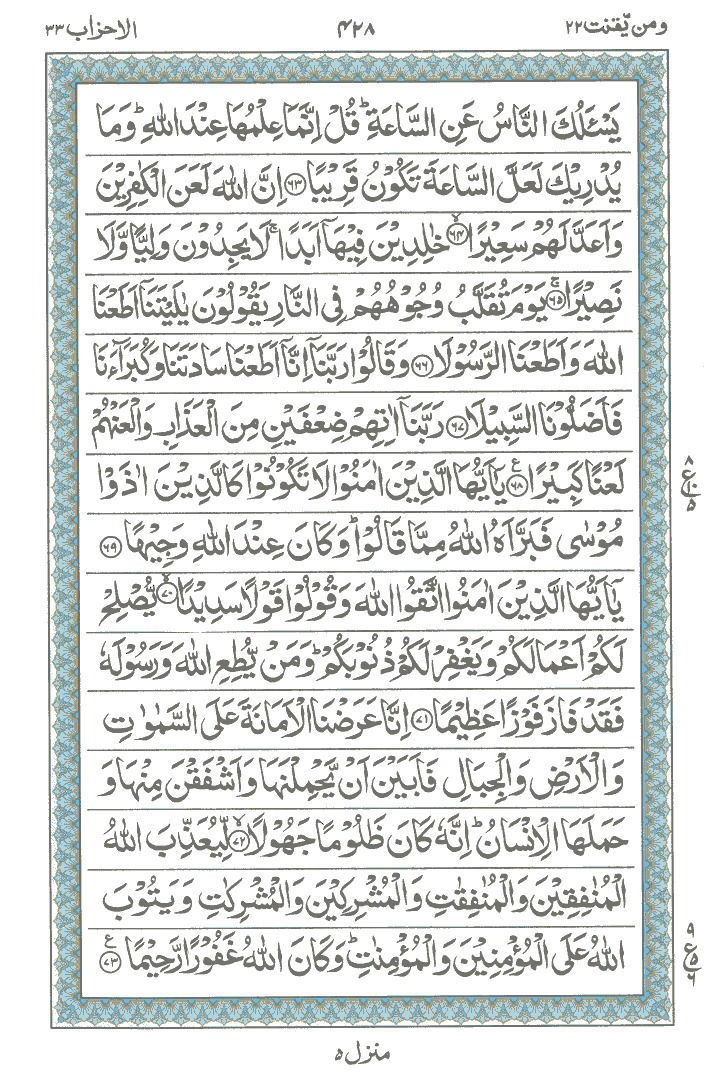 ومن يّقنت٢٢ ۴٢٨ الاحزاب٣٣
يَسْـَٔلُكَ النَّاسُ عَنِ السَّاعَةِ ؕ قُلْ اِنَّمَا عِلْمُهَا عِنْدَ اللّٰهِ ؕ وَمَا
يُدْرِيْكَ لَعَلَّ السَّاعَةَ تَكُوْنُ قَرِيْبًا ۶۳ اِنَّ اللّٰهَ لَعَنَ الْكٰفِرِيْنَ
وَاَعَدَّ لَهُمْ سَعِيْرًا ۶۴ خٰلِدِيْنَ فِيْهَاۤ اَبَدًا ۚ لَا يَجِدُوْنَ وَلِيًّا وَّلَا
نَصِيْرًا ۶۵ يَوْمَ تُقَلَّبُ وُجُوْهُهُمْ فِى النَّارِ يَقُوْلُوْنَ يٰلَيْتَنَاۤ اَطَعْنَا
اللّٰهَ وَاَطَعْنَا الرَّسُوْلَا ۶۶ وَقَالُوْا رَبَّنَاۤ اِنَّاۤ اَطَعْنَا سَادَتَنَا وَكُبَرَآءَنَا
فَاَضَلُّوْنَا السَّبِيْلَا ۶۷ رَبَّنَاۤ اٰتِهِمْ ضِعْفَيْنِ مِنَ الْعَذَابِ وَالْعَنْهُمْ
لَعْنًا كَبِيْرًا ۶۸ يٰۤاَيُّهَا الَّذِيْنَ اٰمَنُوْا لَا تَكُوْنُوْا كَالَّذِيْنَ اٰذَوْا
مُوْسٰى فَبَرَّاَهُ اللّٰهُ مِمَّا قَالُوْا ؕ وَكَانَ عِنْدَ اللّٰهِ وَجِيْهًا ۶۹
يٰۤاَيُّهَا الَّذِيْنَ اٰمَنُوا اتَّقُوا اللّٰهَ وَقُوْلُوْا قَوْلًا سَدِيْدًا ۷۰ يُّصْلِحْ
لَكُمْ اَعْمَالَكُمْ وَيَغْفِرْ لَكُمْ ذُنُوْبَكُمْ ؕ وَمَنْ يُّطِعِ اللّٰهَ وَرَسُوْلَهٗ
فَقَدْ فَازَ فَوْزًا عَظِيْمًا ۷۱ اِنَّا عَرَضْنَا الْاَمَانَةَ عَلَى السَّمٰوٰتِ
وَالْاَرْضِ وَالْجِبَالِ فَاَبَيْنَ اَنْ يَّحْمِلْنَهَا وَاَشْفَقْنَ مِنْهَا وَ
حَمَلَهَا الْاِنْسَانُ ؕ اِنَّهٗ كَانَ ظَلُوْمًا جَهُوْلًا ۷۲ لِّيُعَذِّبَ اللّٰهُ
الْمُنٰفِقِيْنَ وَالْمُنٰفِقٰتِ وَالْمُشْرِكِيْنَ وَالْمُشْرِكٰتِ وَيَتُوْبَ
اللّٰهُ عَلَى الْمُؤْمِنِيْنَ وَالْمُؤْمِنٰتِ ؕ وَكَانَ اللّٰهُ غَفُوْرًا رَّحِيْمًا ۷۳
منزل۵